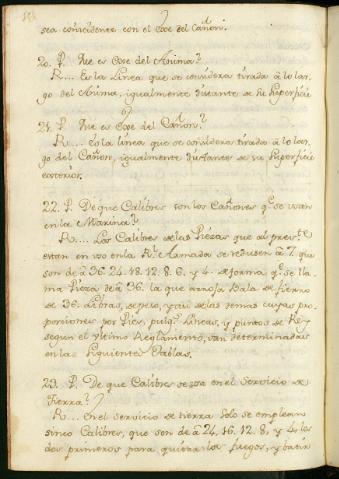 sea coincidente con el Exe del Cañon.
20. P. Que es Exe del Anima?
R.... Es la Linea que se considera tirada â lo lar-
go del Anima, igualmente distante de su superficie
21. P. Que es Exe del Cañon?
R.... Es la linea que se considera tirada â lo lar-
go del Cañon, igualmente distante de su superficie
exterior.
22. P. De que Calibres son los Cañones q.e se usan
en la Marina?
R.... Los Calibres de las Piezas que al pres.te
estan en uso en la R.l Armada se reducen â 7. que
son de â 36. 24. 18. 12. 8. 6. y 4. de forma q.e se lla-
ma Pieza de â 36. la que arroja Bala de fierro
de 36. Libras, de peso, y asi de las demas cuyas pro-
porciones por Pies, pulg.s Lineas, y puntos de Rey
segun el ultimo Reglamento, van determinadas
en las siguientes Tablas.
23. P. De que Calibres se usa en el Servicio de
tierra?
R.... En el servicio de tierra solo se emplean
sinco Calibres, que son de â 24. 16. 12. 8. y 4. los
dos primeros para quitar los fuegos, y batir